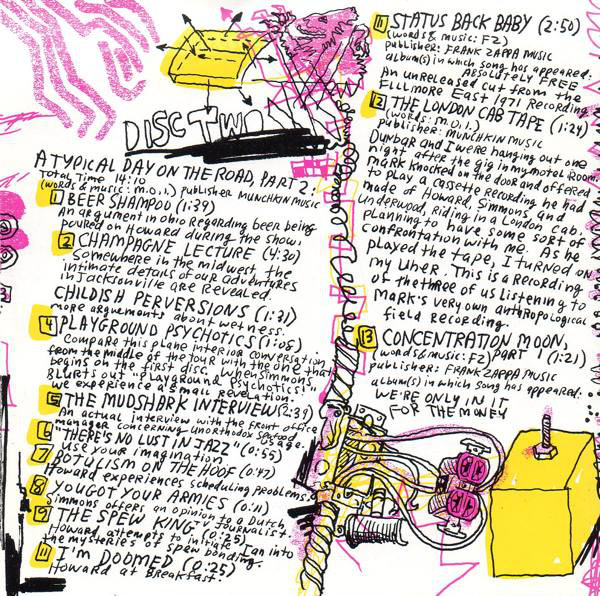 DISC TWO
A TYPICAL DAY ON THE ROAD, PART 2.
Total Time 14:10
(words & music: M.O.I.) publisher MUNCHKIN MUSIC
1 BEER SHAMPOO (1:39)
An argument in Ohio regarding beer being
poured on Howard during the show.
2 CHAMPAGNE LECTURE (4:30)
Somewhere in the midwest the
intimate details of our adventures
in Jacksonville are revealed.
CHILDISH PERVERSIONS (1:31)
more arguements about wetness.
4 PLAYGROUND PSYCHOTICS (1:05)
Compare this plane interior conversation
from the middle of the tour with the one that
begins on the first disc. When Simmons,
Blurts out "playground psychotics"
we experience a small revelation.
5 THE MUDSHARK INTERVIEW (2:39)
An actual interview with the front office
manager concerning unorthodox seafood
usage.
6 "THERE'S NO LUST IN JAZZ" (0:55)
use your imagination.
7 BOTULISM ON THE HOOF (0:47)
Howard experiences scheduling problems.
8 YOU GOT YOUR ARMIES (0:11)
Simmons offers an opinion to a Dutch
Journalist
9 THE SPEW KING (0:25)
Howard attempts to initiate Ian into
the mysteries of spew bonding.
11 I'm DOOMED (0:25)
Howard at Breakfast.
11 STATUS BACK BABY (2:50)
(words & music: FZ)
publisher: FRANK ZAPPA MUSIC
album(s) in which song has appeared:
ABSOLUTELY FREE
An unreleased cut from the
Fillmore East 1971 Recording
12 THE LONDON CAB TAPE (1:24)
(words: M.O.I.)
publisher: MUNCHKIN MUSIC
Dunbar and I were hanging out one
night after the gig in my motel Room.
Mark knocked on the door and offered
to play a cassette Recording he had
made of Howard, Simmons, and
Underwood, riding in a London cab,
planning to have some sort of
confrontation with me. As he
played the tape, I turned on
my Uher. This is a Recording
of the three of us listening to
Mark's very own anthropological
field recording.
13 CONCENTRATION MOON,
PART 1 (1:21)
(words & music: FZ)
publisher: FRANK ZAPPA MUSIC
album(s) in which song has appeared:
WE'RE ONLY IN IT
FOR THE MONEY